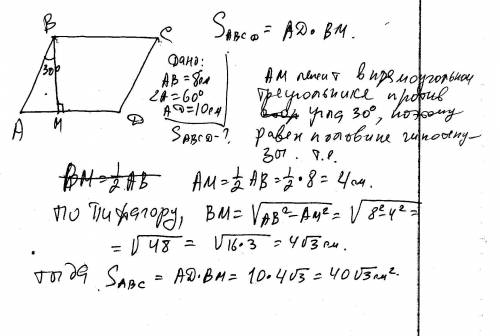 B
C
30°
A
M
D
Дано:
AB = 8см
∠A = 60°
AD = 10см
S_ABCD - ?
S_ABCD = AD · BM.
AM лежит в прямоугольном
треугольнике против
угла 30°, поэтому
равен половине гипотену-
зы. т.е.
BM = 1/2 AB AM = 1/2 AB = 1/2 · 8 = 4 см.
по Пифагору, BM = √(AB² - AM²) = √(8² - 4²) =
= √48 = √(16 · 3) = 4√3 см.
тогда S_ABC = AD · BM = 10 · 4√3 = 40√3 см².